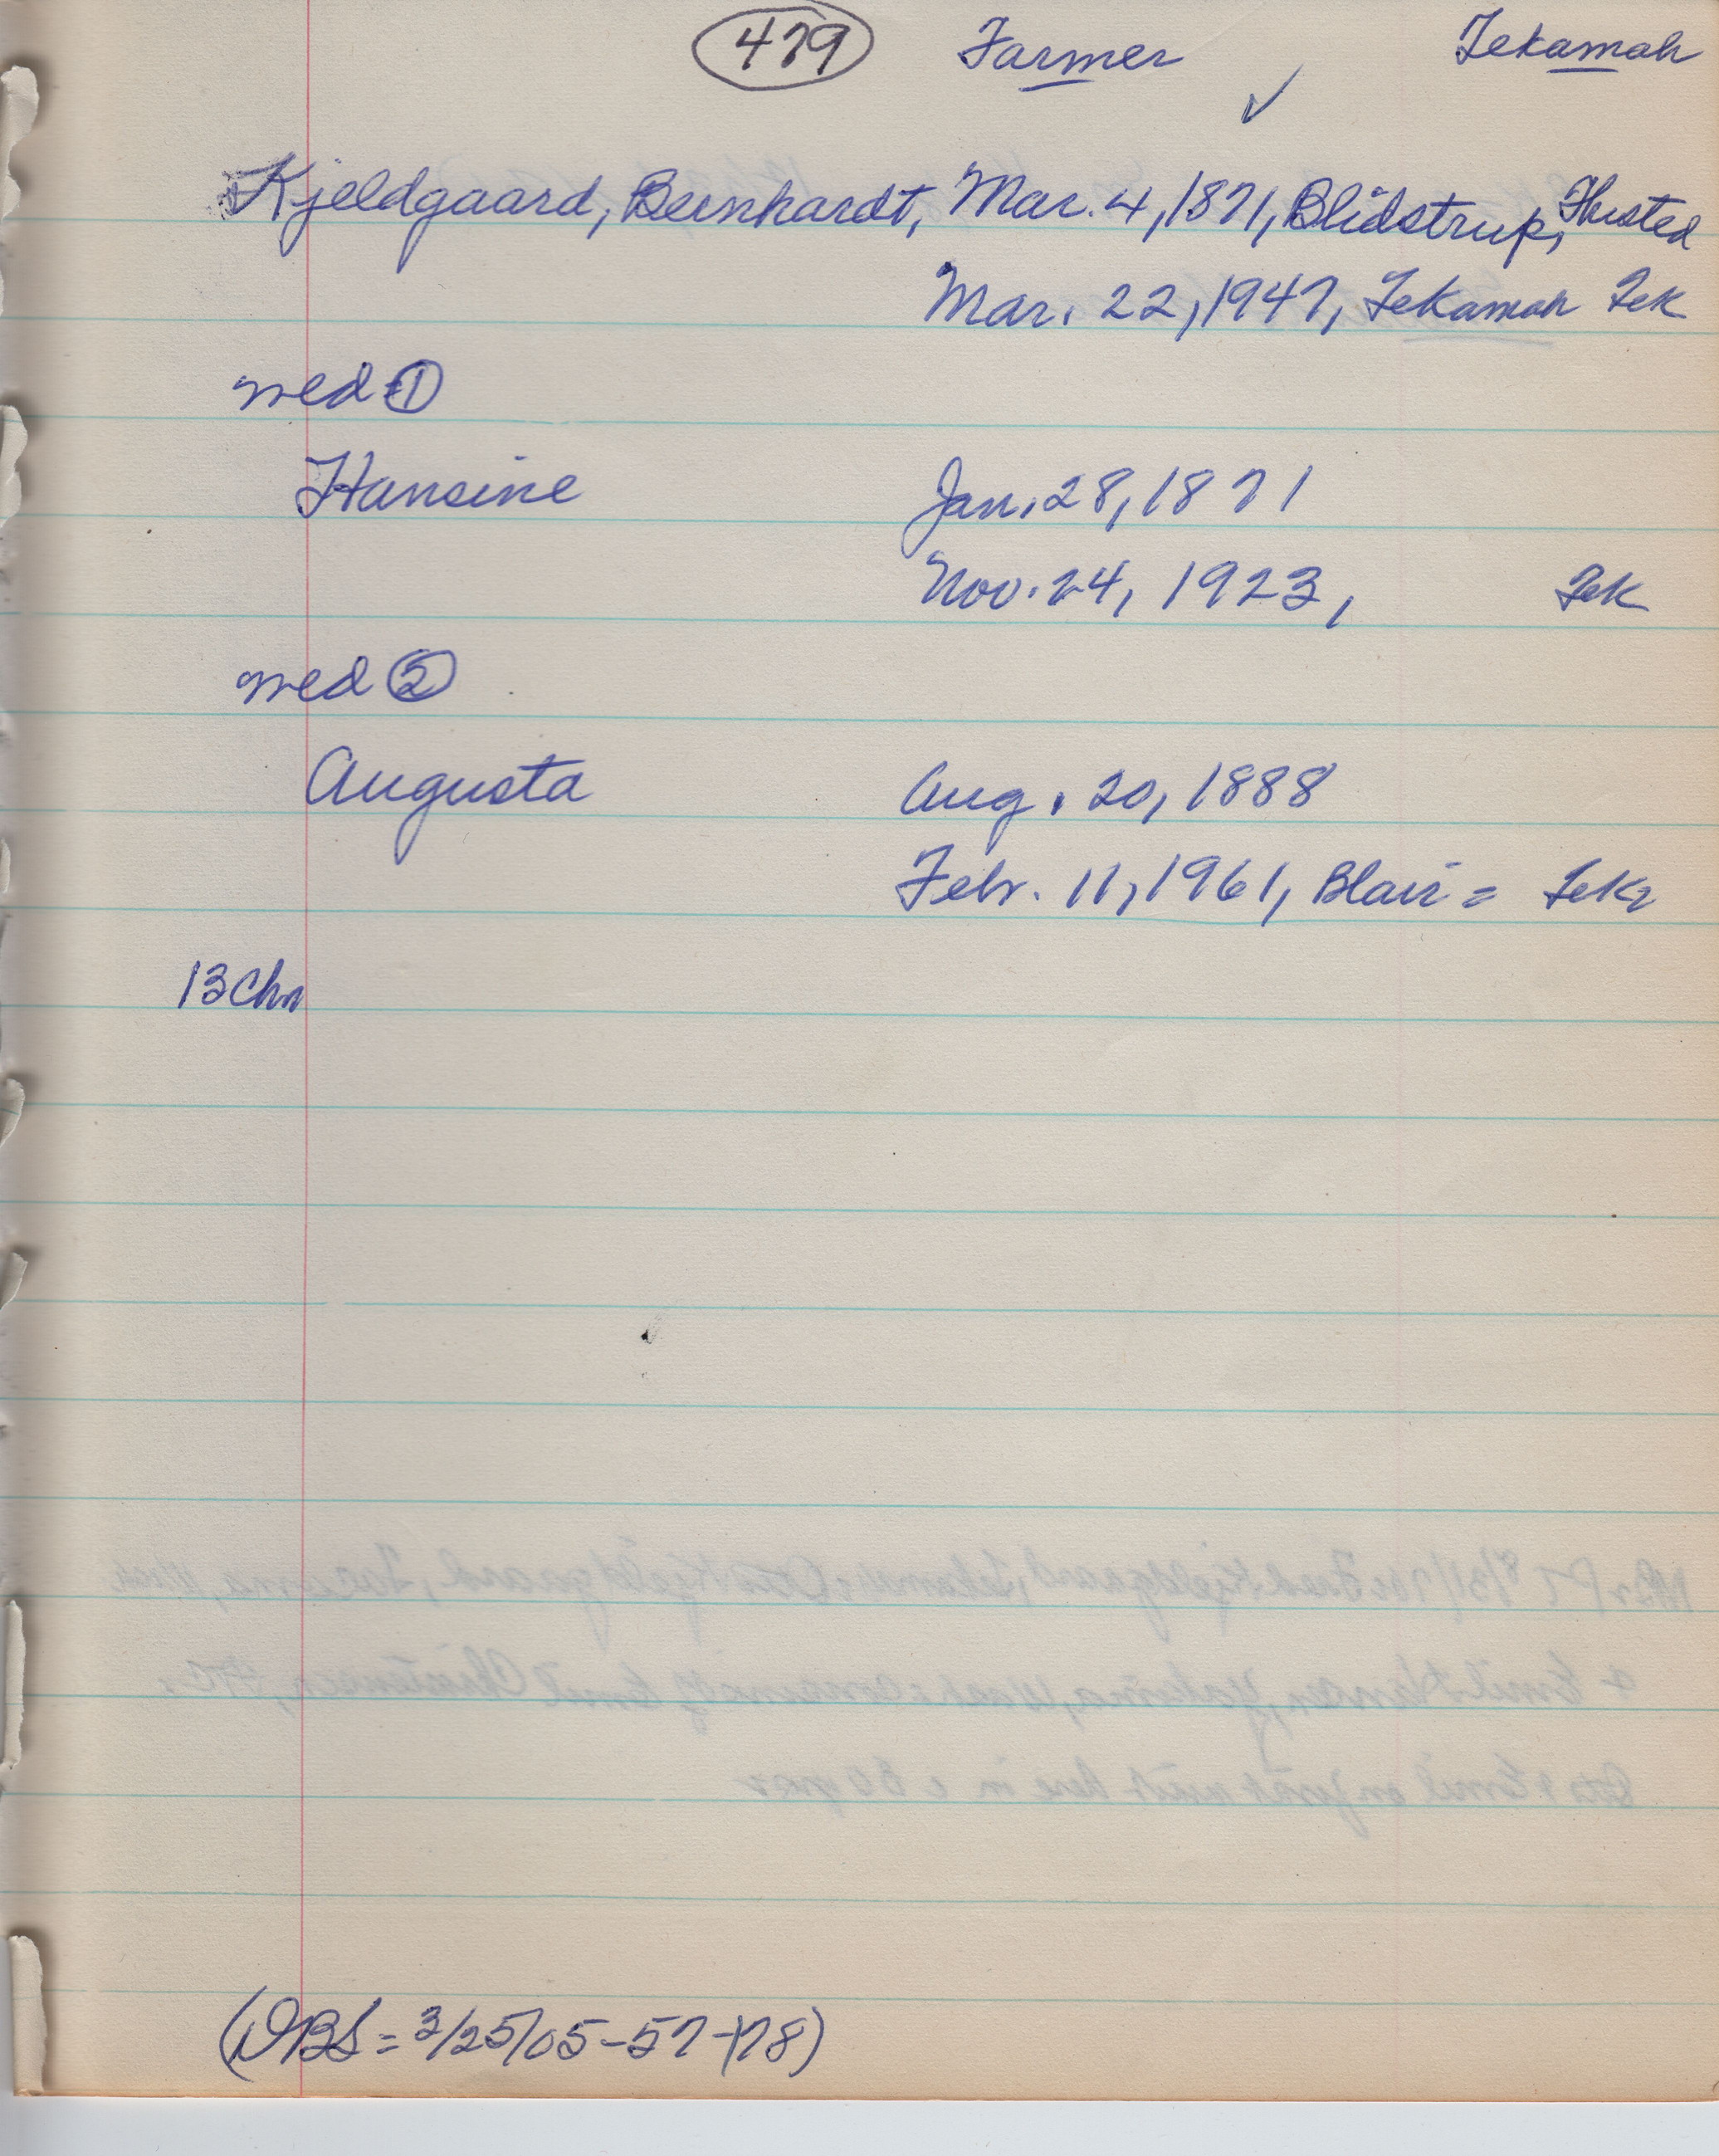 479 Farmer Tekamah
✓
Kjeldgaard, Bernhardt, Mar. 4, 1871, Blidstrup, Thisted
Mar. 22, 1947, Tekamah Tek
med ①
Hansine Jan. 28, 1871
Nov. 24, 1923, Tek
med ②
Augusta Aug. 20, 1888
Febr. 11, 1961, Blair = Tek
13 Chn
(DBS = 3/25/05-57-78)